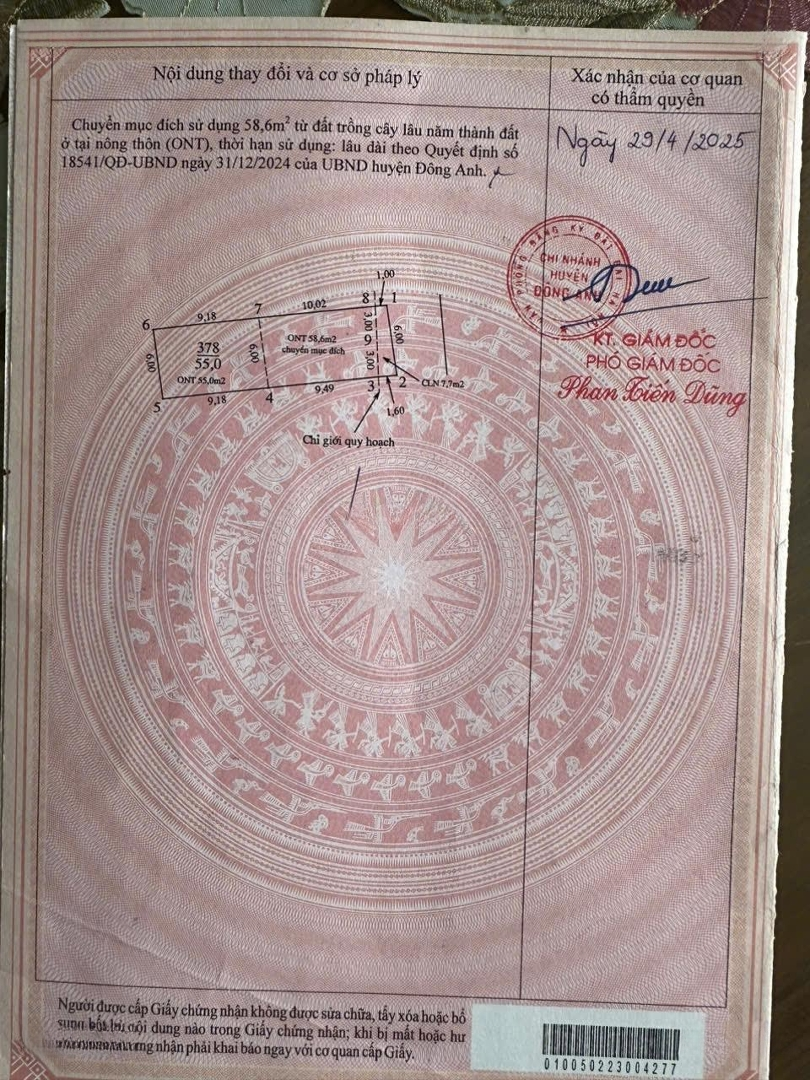 Nội dung thay đổi và cơ sở pháp lý
Xác nhận của cơ quan
có thẩm quyền
Chuyển mục đích sử dụng 58,6m² từ đất trồng cây lâu năm thành đất
ở tại nông thôn (ONT), thời hạn sử dụng: lâu dài theo Quyết định số
18541/QĐ-UBND ngày 31/12/2024 của UBND huyện Đông Anh.
Ngày 29/4/2025
CHI NHÁNH
HUYỆN
ĐÔNG ANH
KT. GIÁM ĐỐC
PHÓ GIÁM ĐỐC
Phan Tiến Dũng
1,00
6 9,18 7 10,02 8 1
6,00
378
55,0
ONT 55,0m2
6,00
ONT 58,6m2
chuyển mục đích
3,00
9
3,00
6,00
5 9,18 4 9,49 3 2
CLN 7,7m2
1,60
Chỉ giới quy hoạch
Người được cấp Giấy chứng nhận không được sửa chữa, tẩy xóa hoặc bổ
nội dung nào trong Giấy chứng nhận; khi bị mất hoặc hư
nhận phải khai báo ngay với cơ quan cấp Giấy.
010050223004277